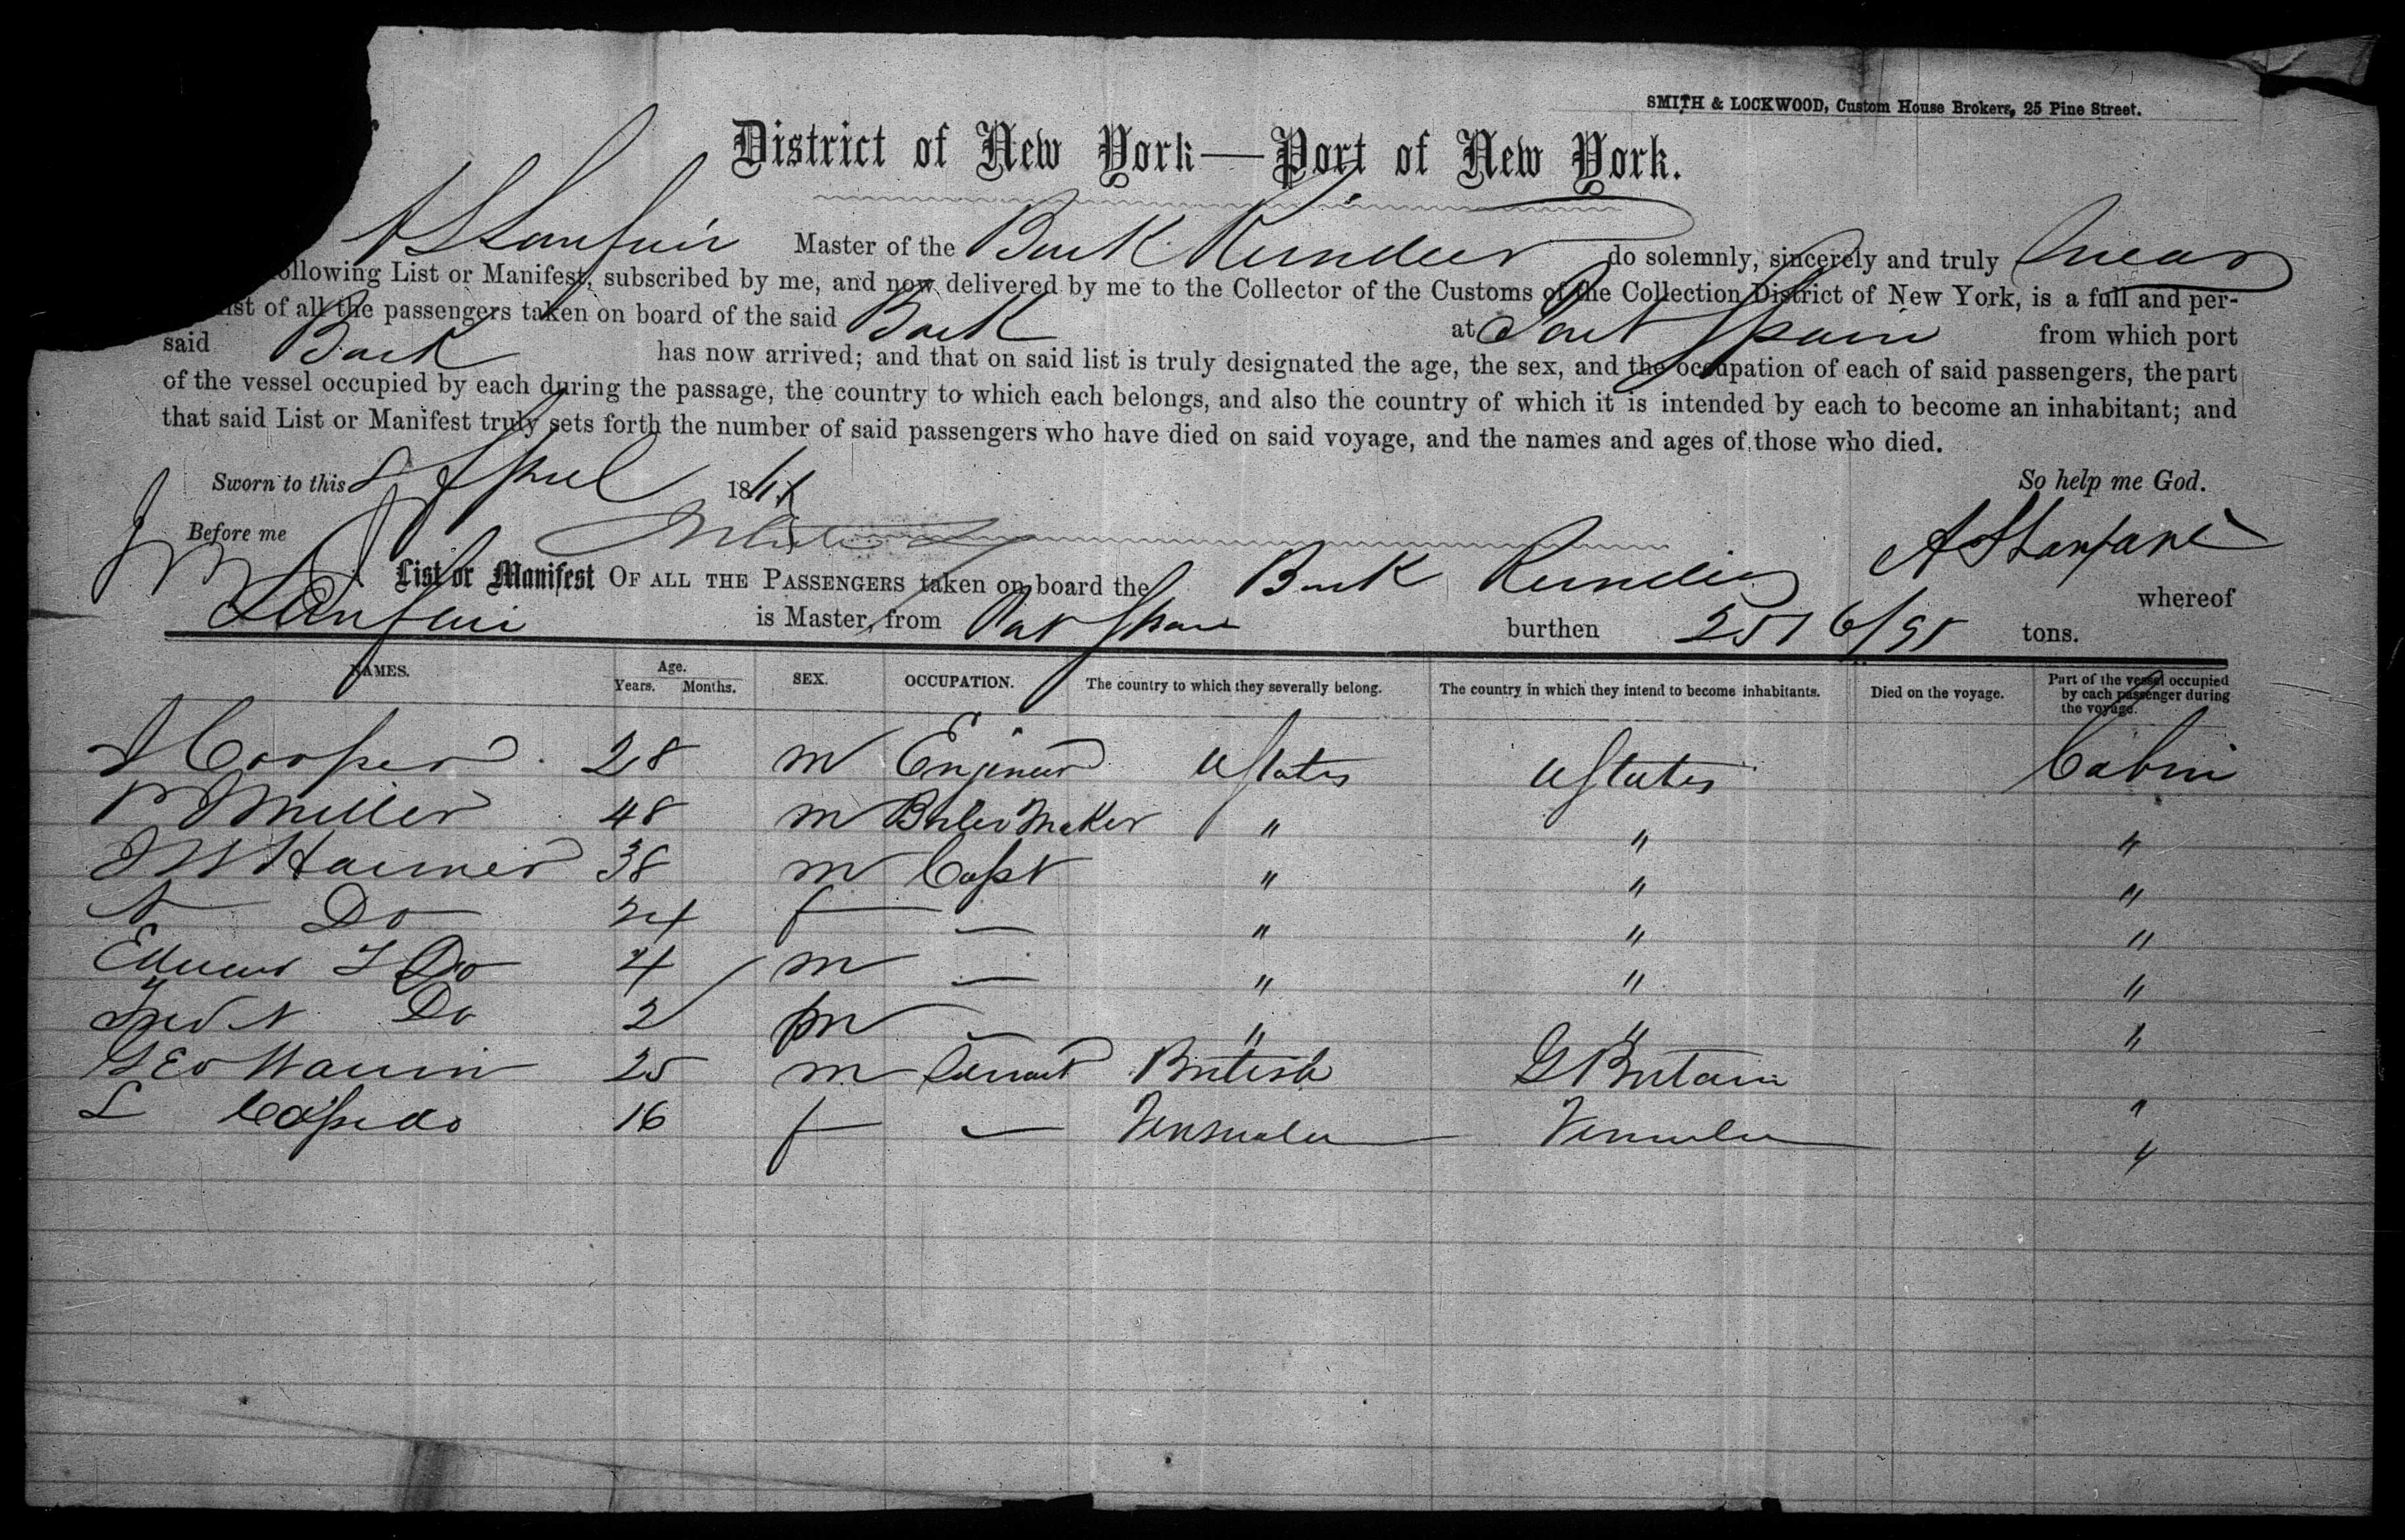 SMITH & LOCKWOOD, Custom House Brokers, 25 Pine Street.
District of New York—Port of New York.
Master of the Bark Reindeer do solemnly, sincerely and truly swear
ollowing List or Manifest, subscribed by me, and now delivered by me to the Collector of the Customs of the Collection District of New York, is a full and per-
ist of all the passengers taken on board of the said Bark at Port Spain from which port
said Bark has now arrived; and that on said list is truly designated the age, the sex, and the occupation of each of said passengers, the part
of the vessel occupied by each during the passage, the country to which each belongs, and also the country of which it is intended by each to become an inhabitant; and
that said List or Manifest truly sets forth the number of said passengers who have died on said voyage, and the names and ages of those who died.
Sworn to this April 18 So help me God.
Before me
List or Manifest OF ALL THE PASSENGERS taken on board the Bark Reindeer whereof
is Master, from Port Spain burthen tons.
NAMES. Age. Years. Months. SEX. OCCUPATION. The country to which they severally belong. The country in which they intend to become inhabitants. Died on the voyage. Part of the vessel occupied by each passenger during the voyage.
Cooper 28 m Engineer UStates UStates Cabin
Miller 48 m Boiler Maker " " "
38 m Capt " " "
N Do 24 f — " " "
Edward Do 4 m — " " "
Fred N Do 2 m — " " "
Geo 25 m Servant British G Britain "
L 16 f — Vensuala "